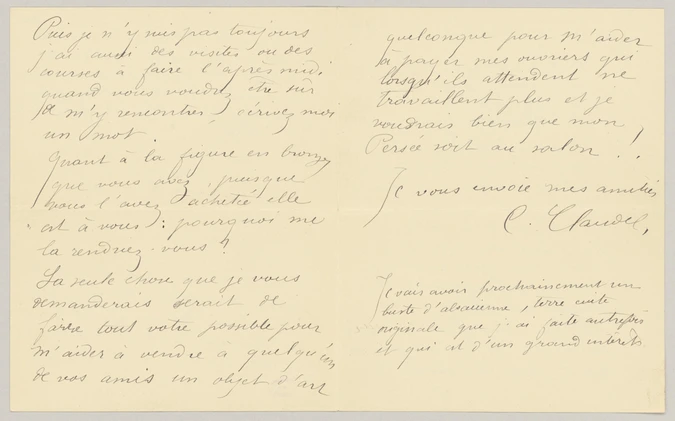 Puis je n'y suis pas toujours
j'ai aussi des visites ou des
courses à faire l'après midi.
quand vous voudrez être sûr
de m'y rencontrer écrivez moi
un mot.
Quant à la figure en bronze
que vous avez, puisque
vous l'avez achetée elle
est à vous : pourquoi me
la rendriez-vous ?
La seule chose que je vous
demanderais serait de
faire tout votre possible pour
m'aider à vendre à quelqu'un
de vos amis un objet d'art
quelconque pour m'aider
à payer mes ouvriers qui
lorsqu'ils attendent ne
travaillent plus et je
voudrais bien que mon
Persée soit au salon !
Je vous envoie mes amitiés
C. Claudel,
Je vais avoir prochainement un
buste d'alsacienne, terre cuite
originale que j'ai faite autrefois
et qui est d'un grand intérêt